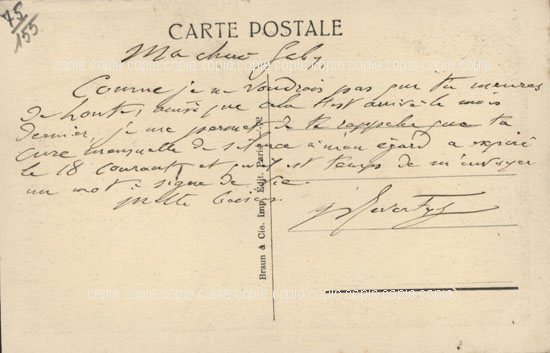 75
155
CARTE POSTALE
Ma chère Gaby,
Comme je ne voudrais pas que tu meures
de honte, ainsi que cela t'est arrivé le mois
dernier, je me permets de te rappeler que ta
cure mensuelle de silence à mon égard a expiré
le 18 courant, et qu'il est temps de m'envoyer
un mot, signe de vie.
mille baisers.
Braun & Cie. Imp. Edit. Paris
copie copie copie copie copie copie copie copie copie copie
copie copie copie copie copie copie copie copie copie copie
copie copie copie copie copie copie copie copie copie copie